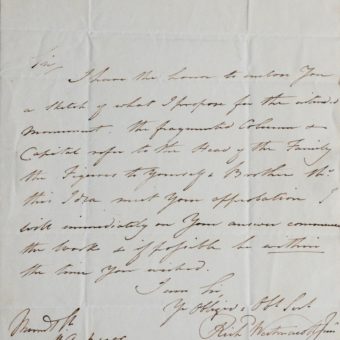 Sir,
I have the honor to enclose You
a Sketch of what I propose for the intended
Monument. the fragmented Column &
Capital refer to the Head of the Family
the Figures to Yourself & Brother
this Idea meet Your approbation I
will immediately on Your answer commence
the Work & if possible be within
the time You wished.
I am Sir
Yr Obliged & Obt Sert
Richd Westmacott Junr
Mount St